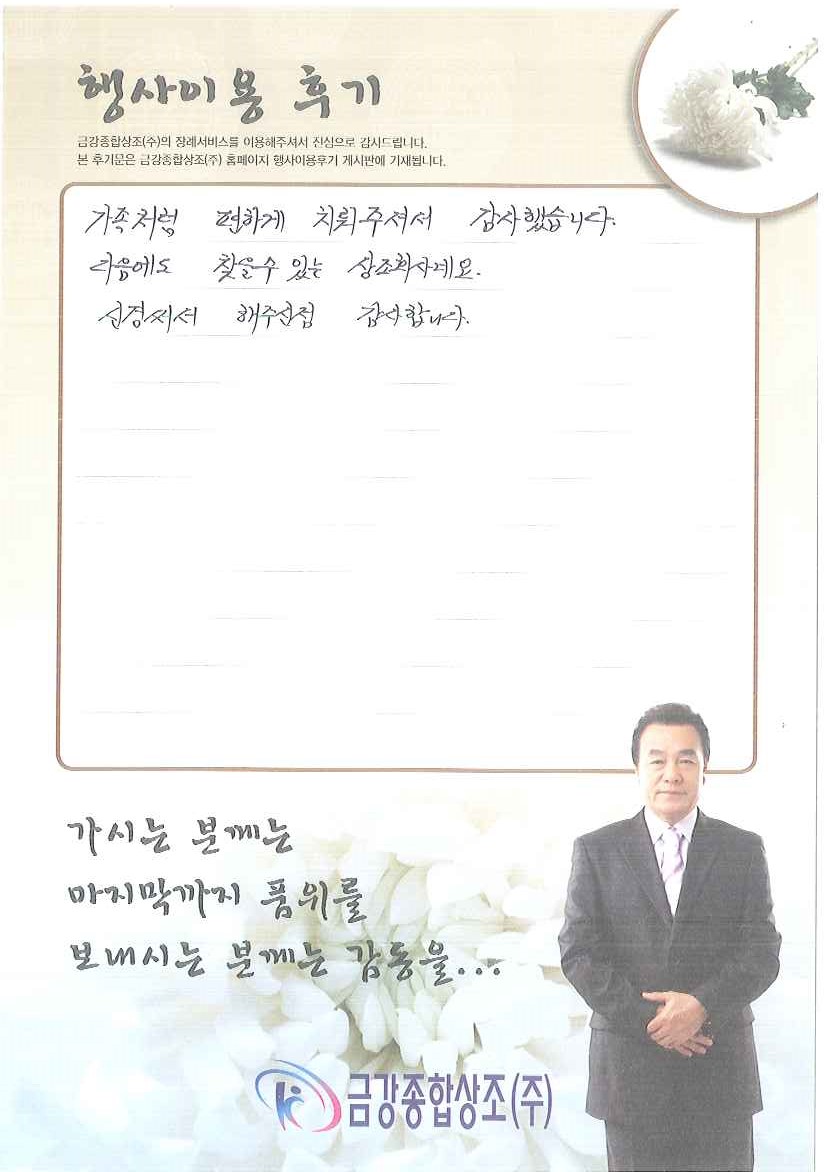 행사이용 후기
금강종합상조(주)의 장례서비스를 이용해주셔서 진심으로 감사드립니다.
본 후기문은 금강종합상조(주) 홈페이지 행사이용후기 게시판에 기재됩니다.
가족처럼 편하게 치뤄주셔서 감사했습니다.
다음에도 찾을수 있는 상조회사네요.
신경써서 해주신점 감사합니다.
가시는 분께는
마지막까지 품위를
보내시는 분께는 감동을...
금강종합상조(주)